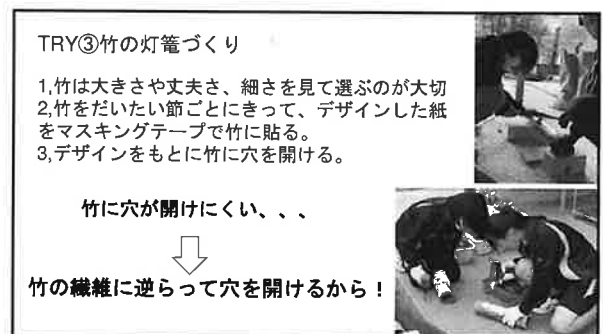 TRY③竹の灯篭づくり
1,竹は大きさや丈夫さ、細さを見て選ぶのが大切
2,竹をだいたい節ごとにきって、デザインした紙
をマスキングテープで竹に貼る。
3,デザインをもとに竹に穴を開ける。
竹に穴が開けにくい、、、
竹の繊維に逆らって穴を開けるから！